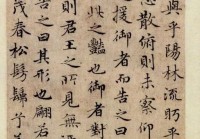 與乎陽林流眄乎
思散俯則未察仰
援御者而告之曰
此之豔也御者對
則君王之所見無
告之曰其形也翩若
茂春松髣髴兮